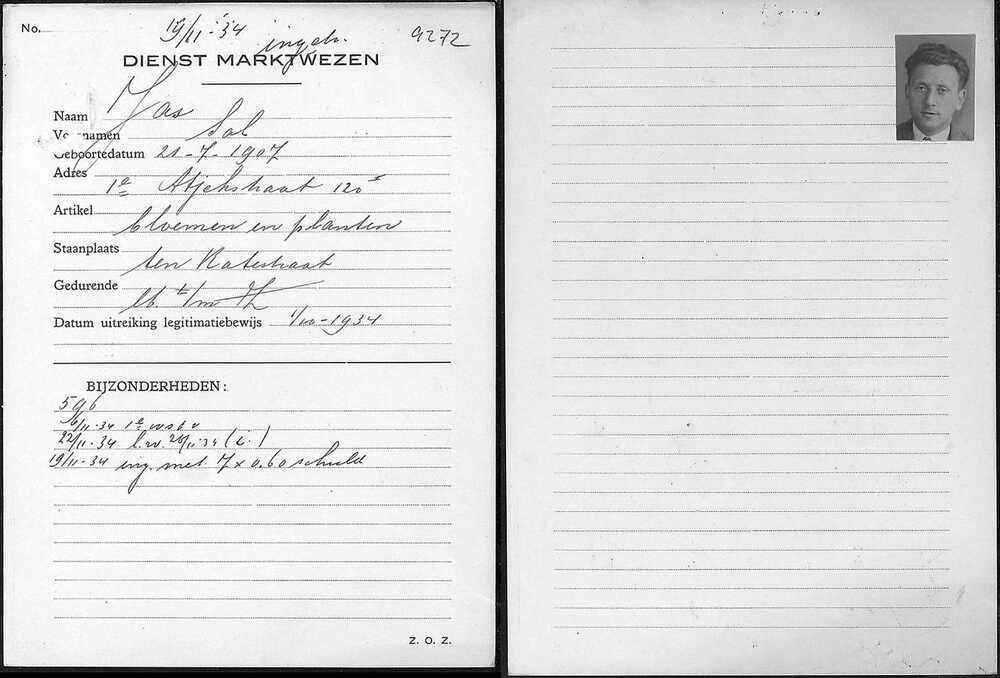 No. 19/11-'34 ingetr. 9272
DIENST MARKTWEZEN
Naam Jas
Voornamen Sal
Geboortedatum 21-7-1907
Adres
1e Atjehstraat 120 I
Artikel
bloemen en planten
Staanplaats
ten Katestraat
Gedurende
t/m
Datum uitreiking legitimatiebewijs -1934
BIJZONDERHEDEN:
596
6/11-34 1e
22/11-34 26/11-34 (i.)
19/11-34 ing. met 7 x 0.60 schuld
Z. O. Z.